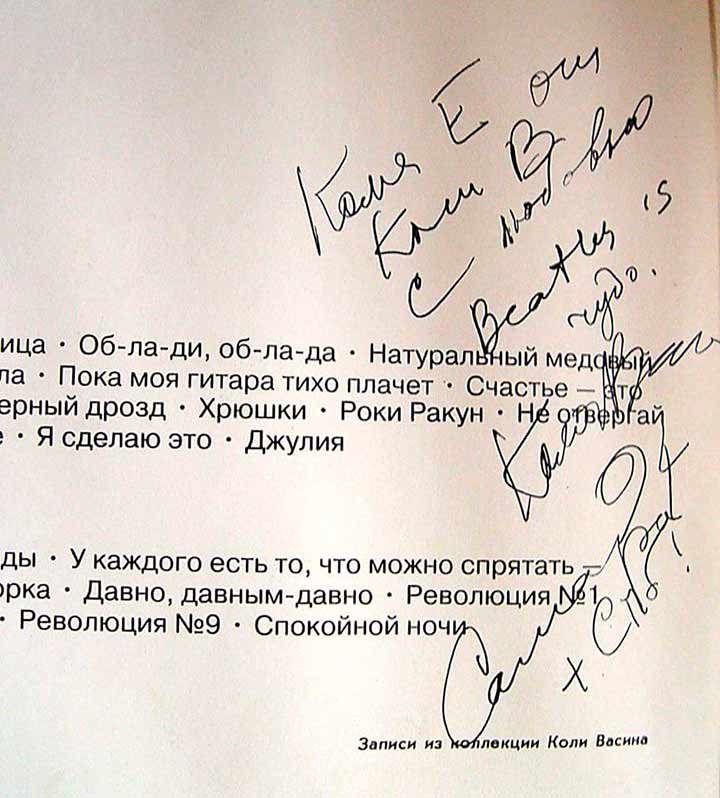 Коля Е от
Коли В
С любовью
Beatles is
чудо.
ица · Об-ла-ди, об-ла-да · Натуральный медовый
ла · Пока моя гитара тихо плачет · Счастье — это
ерный дрозд · Хрюшки · Роки Ракун · Не отвергай
е · Я сделаю это · Джулия
Коля
ды · У каждого есть то, что можно спрятать —
орка · Давно, давным-давно · Революция №1
· Революция №9 · Спокойной ночи
СПб!
Записи из коллекции Коли Васина